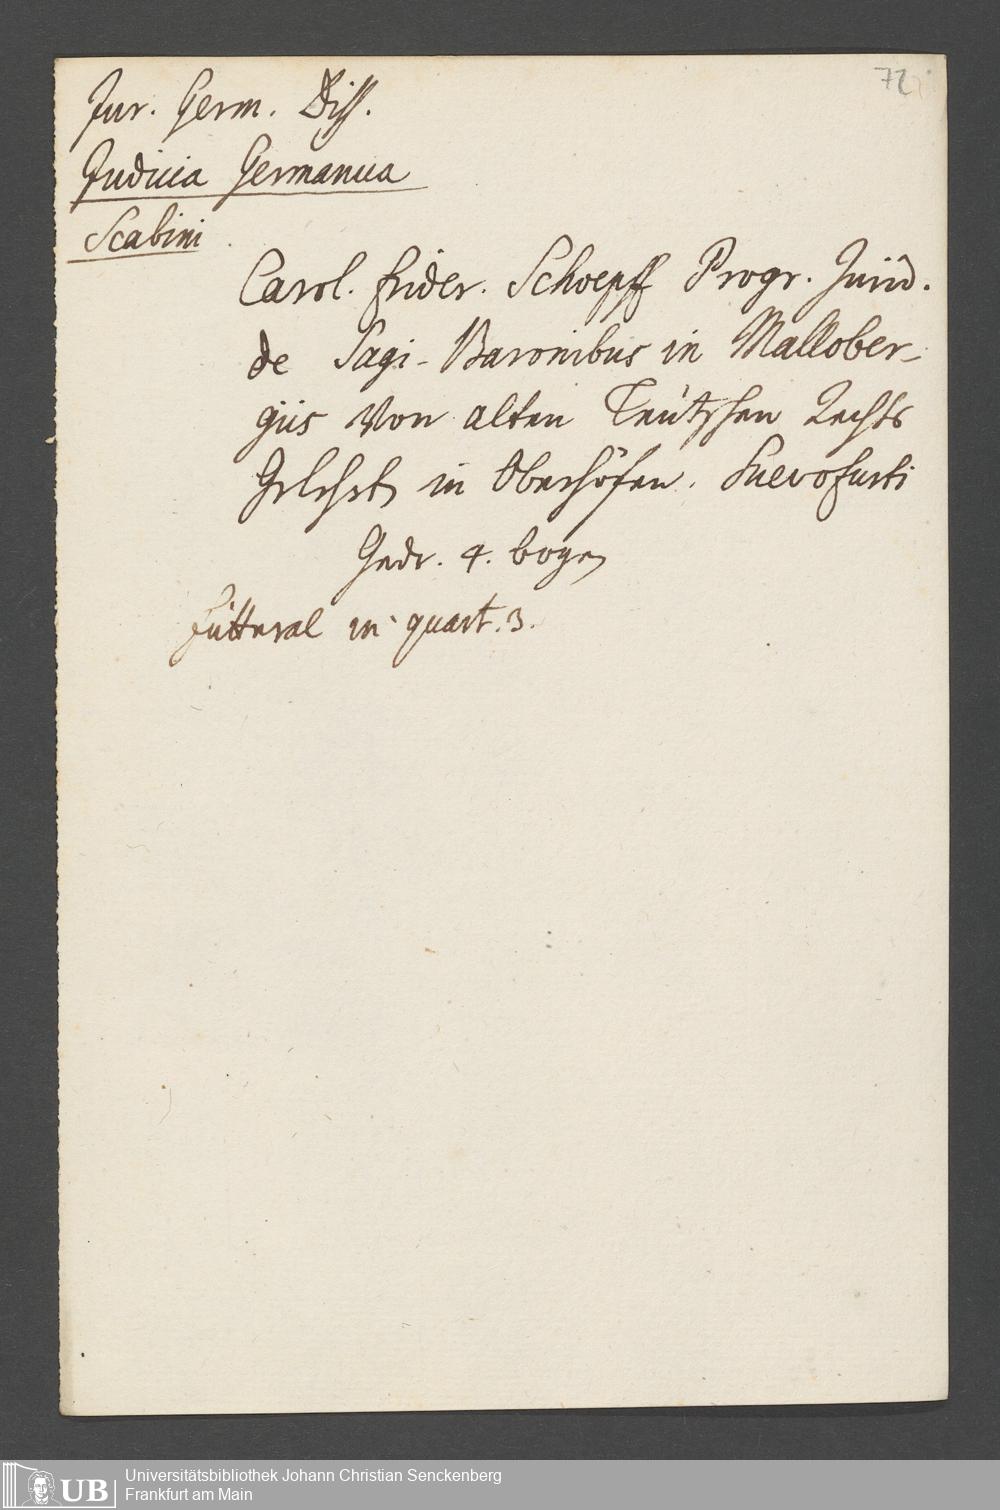 72
Jur. Germ. Diss.
Judicia Germanica
Scabini
Carol. Frider. Schoepff Progr. Jurid.
de Sagi-Baronibus in Mallober-
giis von alten Teütschen Rechts
Gelehrten in Oberhöfen. Suevofurti
Gedr. 4. bogen
Futteral in quart. 3.
Universitätsbibliothek Johann Christian Senckenberg
Frankfurt am Main
UB